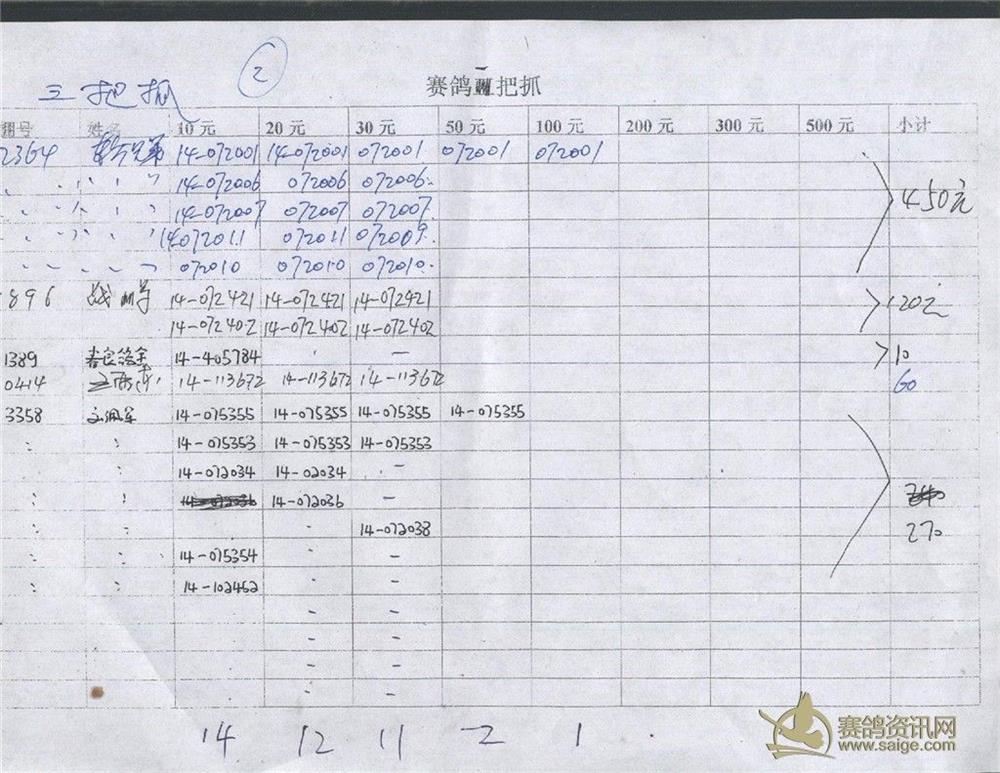 ②
三把抓
赛鸽三把抓
翮号 姓名 10元 20元 30元 50元 100元 200元 300元 500元 小计
2364 兄弟 14-072001 14-072001 072001 072001 072001
14-072006 072006 072006
14-072007 072007 072007 450元
14072011 072011 072009
072010 072010 072010
896 14-072421 14-072421 14-072421 120元
14-072402 14-072402 14-072402
1389 14-405784 - 10
0414 14-113672 14-113672 14-113672 60
3358 14-075355 14-075355 14-075355 14-075355
14-075353 14-075353 14-075353
14-072034 14-02034 -
14-072036 14-072036 -
14-072038 270
14-075354 - -
14-102462 - -
- -
- -
- -
- -
14 12 11 2 1
赛鸽资讯网
www.saige.com